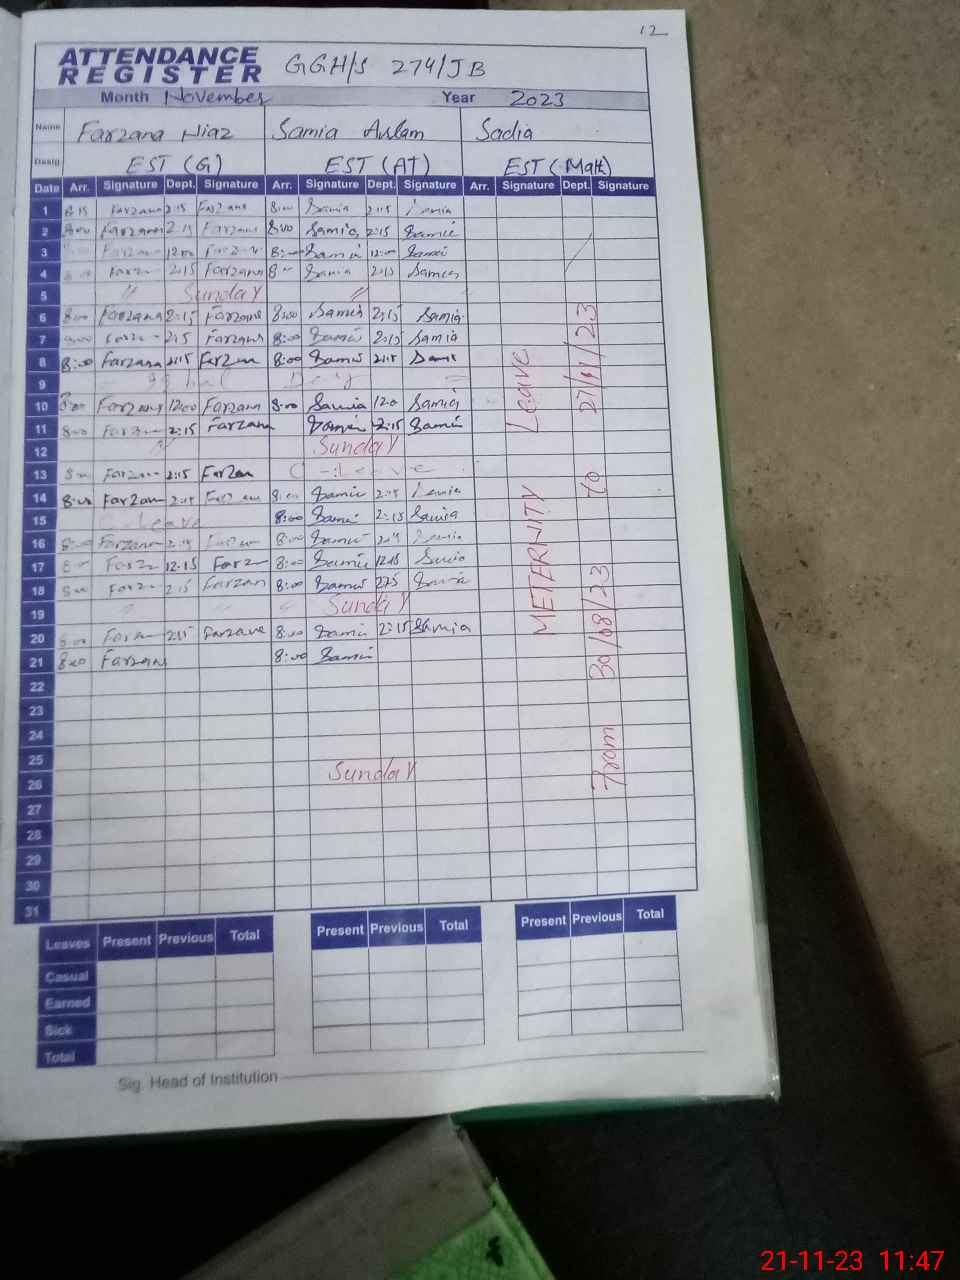 12
ATTENDANCE
REGISTER GGH/S 274/JB
Month November Year 2023
Name Farzana Niaz Samia Aulam Sadia
Desig EST (G) EST (AT) EST (Math)
Date Arr. Signature Dept. Signature Arr. Signature Dept. Signature Arr. Signature Dept. Signature
1 8:15 Farzana 2:15 Farzana 8:00 Samia 2:15 Samia
2 8:00 Farzana 2:15 Farzana 8:00 Samia 2:15 Samia
3 Farzana 12:00 Farzana 8:00 Samia 12:00 Samia
4 Farzana 2:15 Farzana 8:00 Samia 2:15 Samia
5 " Sunday "
6 8:00 Farzana 2:15 Farzana 8:00 Samia 2:15 Samia
7 8:00 Farzana 2:15 Farzana 8:00 Samia 2:15 Samia
8 8:00 Farzana 2:15 Farzana 8:00 Samia 2:15 Samia
9 Day
10 8:00 Farzana 12:00 Farzana 8:00 Samia 12:0 Samia
11 8:00 Farzana 2:15 Farzana Samia 2:15 Samia
12 Sunday
13 8:00 Farzana 2:15 Farzan C-Leave
14 8:00 Farzan 2:15 Farzana 8:00 Samia 2:15 Samia
15 Leave 8:00 Samia 2:15 Samia
16 8:00 Farzana 2:15 Farzana 8:00 Samia 2:15 Samia
17 8:00 Farzana 12:15 Farzana 8:00 Samia 12:15 Samia
18 8:00 Farzana 2:15 Farzan 8:00 Samia 2:15 Samia
19 Sunday
20 8:00 Farzana 2:15 Farzana 8:00 Samia 2:15 Samia
21 8:00 Farzana 8:00 Samia
22
23
24
25
26 Sunday
27
28
29
30
31
METERNITY Leave
From 30/08/23 to 27/11/23
Leaves Present Previous Total Present Previous Total Present Previous Total
Casual
Earned
Sick
Total
Sig. Head of Institution
21-11-23 11:47